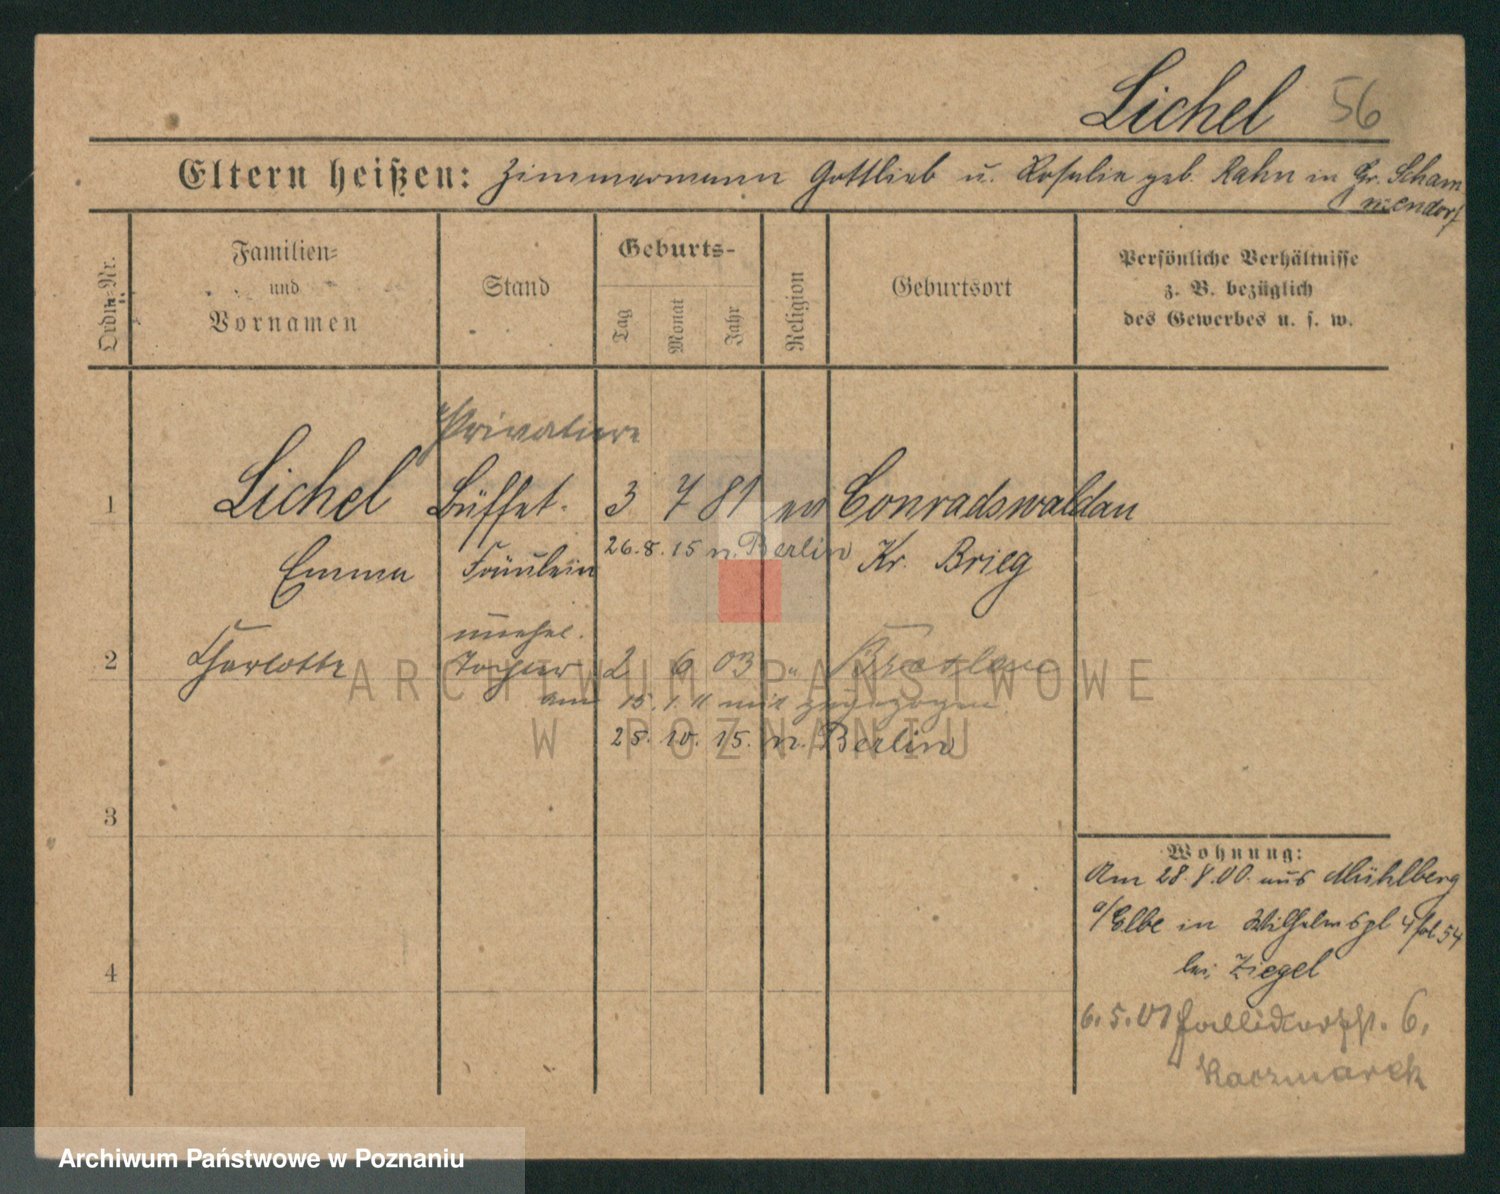 Lichel 56
Eltern heißen: Zimmermann Gottlieb u. Rosalie geb. Hahn in Gr. Scham
mendorf
Ordn.-Nr.
Familien-
und
Vornamen
Stand
Geburts-
Tag
Monat
Jahr
Religion
Geburtsort
Persönliche Verhältnisse
z. B. bezüglich
des Gewerbes u. s. w.
Privatiere
1 Lichel Büffet- 3 7 81 ev Conradswaldau
Emma Fräulein 26. 8. 15 n. Berlin Kr. Brieg
unehel.
2 Charlotte Tochter 2 6 03 " Breslau
am 15. 1. 11 mit zugezogen
25. 10. 15. n. Berlin
ARCHIWUM PAŃSTWOWE
W POZNANIU
3
4
Wohnung:
Am 28. 8. 00. aus Mühlberg
a/Elbe in Wilhelmspl 4 54
bei Ziegel
6. 5. 01 6.
Kaczmarek
Archiwum Państwowe w Poznaniu